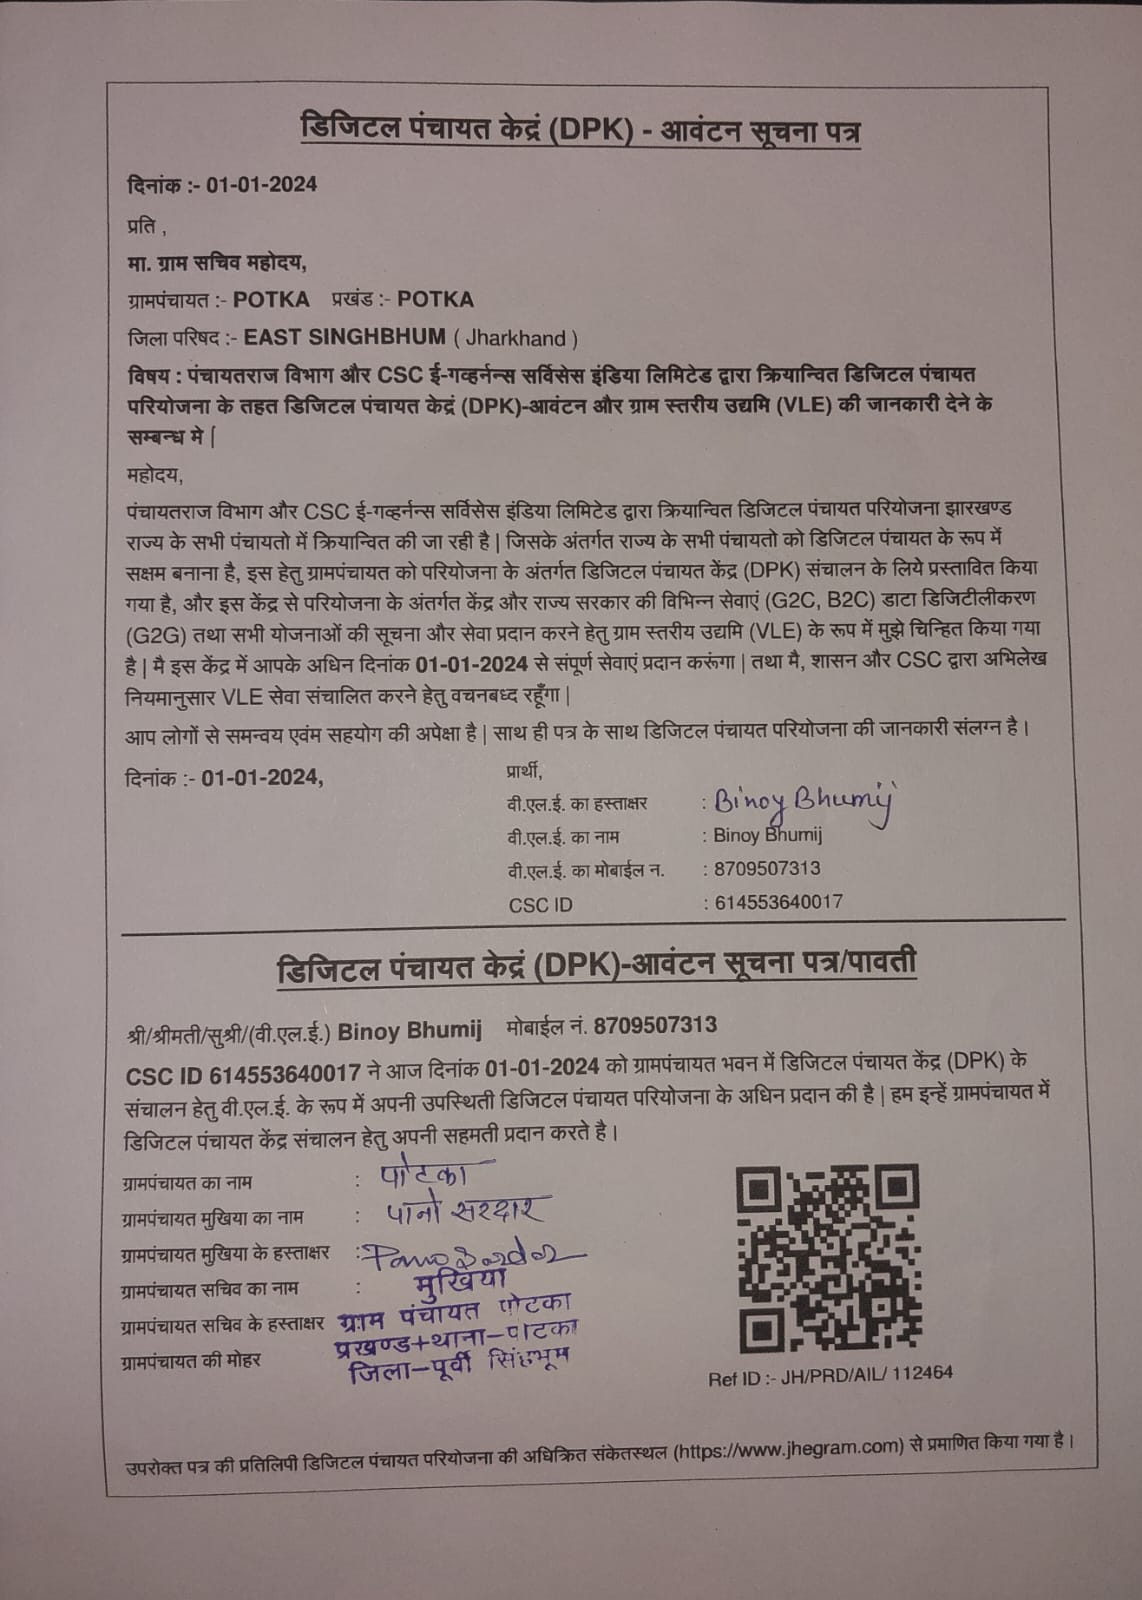 डिजिटल पंचायत केद्रं (DPK) - आवंटन सूचना पत्र
दिनांक :- 01-01-2024
प्रति ,
मा. ग्राम सचिव महोदय,
ग्रामपंचायत :- POTKA प्रखंड :- POTKA
जिला परिषद :- EAST SINGHBHUM ( Jharkhand )
विषय : पंचायतराज विभाग और CSC ई-गव्हर्नन्स सर्विसेस इंडिया लिमिटेड द्वारा क्रियान्वित डिजिटल पंचायत
परियोजना के तहत डिजिटल पंचायत केद्रं (DPK)-आवंटन और ग्राम स्तरीय उद्यमि (VLE) की जानकारी देने के
सम्बन्ध मे |
महोदय,
पंचायतराज विभाग और CSC ई-गव्हर्नन्स सर्विसेस इंडिया लिमिटेड द्वारा क्रियान्वित डिजिटल पंचायत परियोजना झारखण्ड
राज्य के सभी पंचायतो में क्रियान्वित की जा रही है | जिसके अंतर्गत राज्य के सभी पंचायतो को डिजिटल पंचायत के रूप में
सक्षम बनाना है, इस हेतु ग्रामपंचायत को परियोजना के अंतर्गत डिजिटल पंचायत केंद्र (DPK) संचालन के लिये प्रस्तावित किया
गया है, और इस केंद्र से परियोजना के अंतर्गत केंद्र और राज्य सरकार की विभिन्न सेवाएं (G2C, B2C) डाटा डिजिटीलीकरण
(G2G) तथा सभी योजनाओं की सूचना और सेवा प्रदान करने हेतु ग्राम स्तरीय उद्यमि (VLE) के रूप में मुझे चिन्हित किया गया
है | मै इस केंद्र में आपके अधिन दिनांक 01-01-2024 से संपूर्ण सेवाएं प्रदान करूंगा | तथा मै, शासन और CSC द्वारा अभिलेख
नियमानुसार VLE सेवा संचालित करने हेतु वचनबध्द रहूँगा |
आप लोगों से समन्वय एवंम सहयोग की अपेक्षा है | साथ ही पत्र के साथ डिजिटल पंचायत परियोजना की जानकारी संलग्न है |
दिनांक :- 01-01-2024,
प्रार्थी,
वी.एल.ई. का हस्ताक्षर : Binoy Bhumij
वी.एल.ई. का नाम : Binoy Bhumij
वी.एल.ई. का मोबाईल न. : 8709507313
CSC ID : 614553640017
डिजिटल पंचायत केद्रं (DPK)-आवंटन सूचना पत्र/पावती
श्री/श्रीमती/सुश्री/(वी.एल.ई.) Binoy Bhumij मोबाईल नं. 8709507313
CSC ID 614553640017 ने आज दिनांक 01-01-2024 को ग्रामपंचायत भवन में डिजिटल पंचायत केंद्र (DPK) के
संचालन हेतु वी.एल.ई. के रूप में अपनी उपस्थिती डिजिटल पंचायत परियोजना के अधिन प्रदान की है | हम इन्हें ग्रामपंचायत में
डिजिटल पंचायत केंद्र संचालन हेतु अपनी सहमती प्रदान करते है |
ग्रामपंचायत का नाम : पोटका
ग्रामपंचायत मुखिया का नाम : पानो सरदार
ग्रामपंचायत मुखिया के हस्ताक्षर : Pano Sardar
ग्रामपंचायत सचिव का नाम :
मुखिया
ग्रामपंचायत सचिव के हस्ताक्षर
ग्राम पंचायत पोटका
प्रखण्ड+थाना-पोटका
ग्रामपंचायत की मोहर
जिला-पूर्वी सिंहभूम
Ref ID :- JH/PRD/AIL/ 112464
उपरोक्त पत्र की प्रतिलिपी डिजिटल पंचायत परियोजना की अधिक्रित संकेतस्थल (https://www.jhegram.com) से प्रमाणित किया गया है |